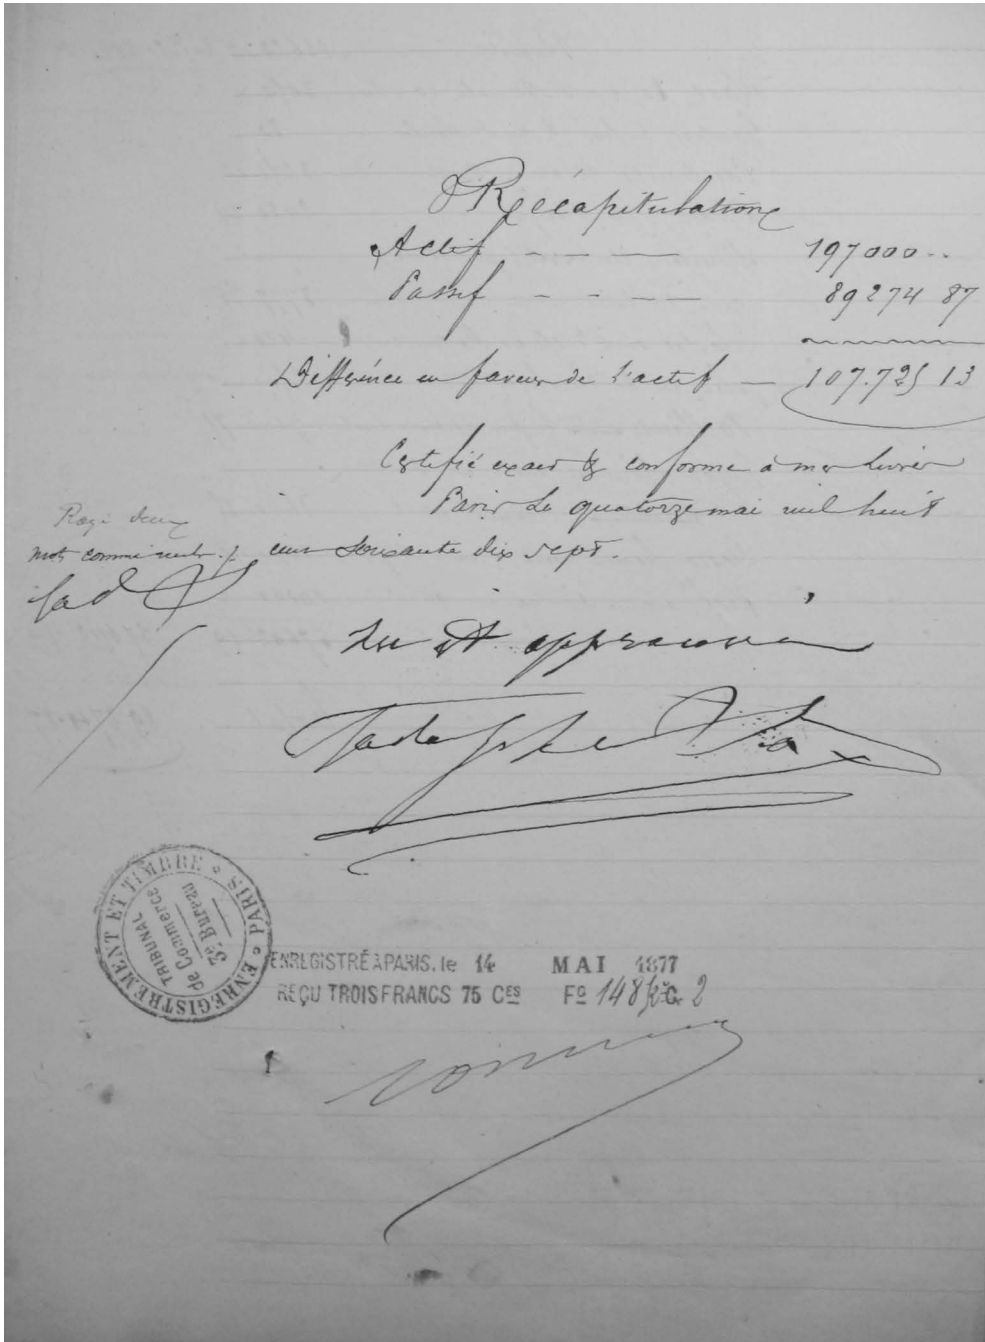 Récapitulation
Actif - - - - 197000 ..
Passif - - - - 89274 87
Différence en faveur de l'actif - 107.725 13
Certifié exact & conforme à mes livres
Paris le quatorze mai mil huit
cent soixante dix sept.
Rayé deux
mots comme nuls ./.
Lu et approuvé
ENREGISTREMENT ET TIMBRE * PARIS *
TRIBUNAL
de Commerce
3e Bureau
ENREGISTRÉ À PARIS, le 14 MAI 1877
REÇU TROIS FRANCS 75 CES Fº 148 Rº C. 2